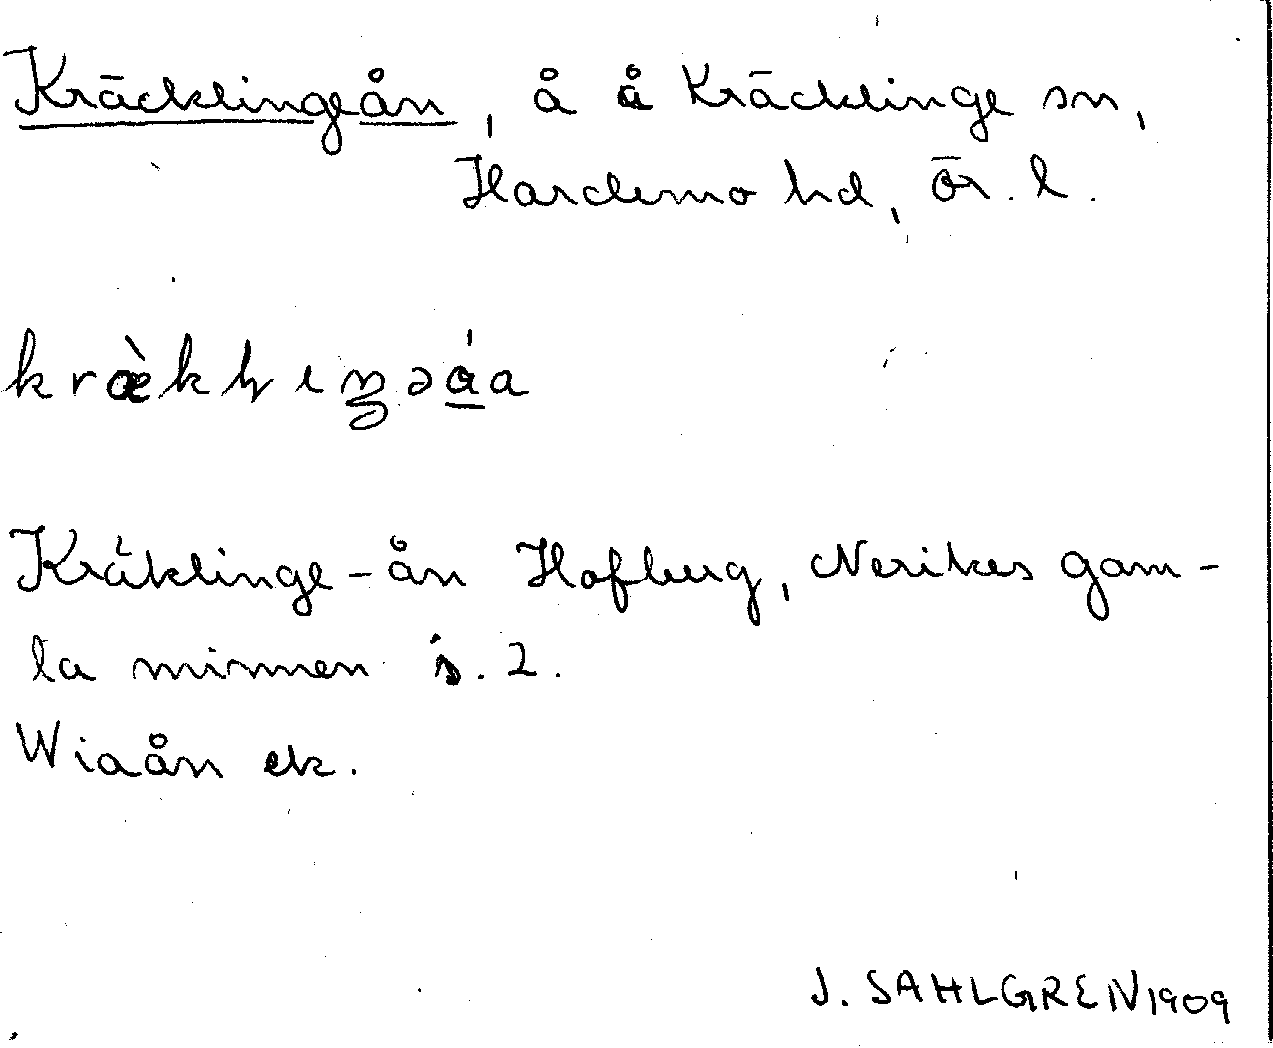 Kräcklingeån, å å Kräcklinge sn,
Hardemo hd, Ör. l.
Kräklinge-ån Hofberg, Nerikes gam-
la minnen s. 2.
Wiaån ek.
J. SAHLGREN 1909